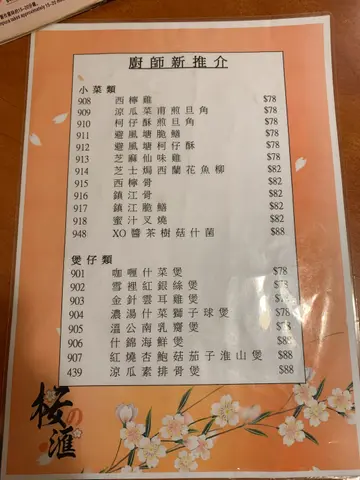 廚師新推介
小菜類
908 西檸雞 $78
909 涼瓜菜甫煎旦角 $78
910 柯仔酥煎旦角 $78
911 避風塘脆鱔 $78
912 避風塘柯仔酥 $78
913 芝麻仙味雞 $78
914 芝士焗西蘭花魚柳 $82
915 西檸骨 $82
916 鎮江骨 $82
917 鎮江脆鱔 $82
918 蜜汁叉燒 $82
948 XO醬茶樹菇什菌 $88
煲仔類
901 咖喱什菜煲 $78
902 雪裡紅銀絲煲 $78
903 金針雲耳雞煲 $78
904 濃湯什菜獅子球煲 $78
905 溫公南乳齋煲 $78
906 什錦海鮮煲 $88
907 紅燒杏鮑菇茄子淮山煲 $88
439 涼瓜素排骨煲 $88
桜の滙